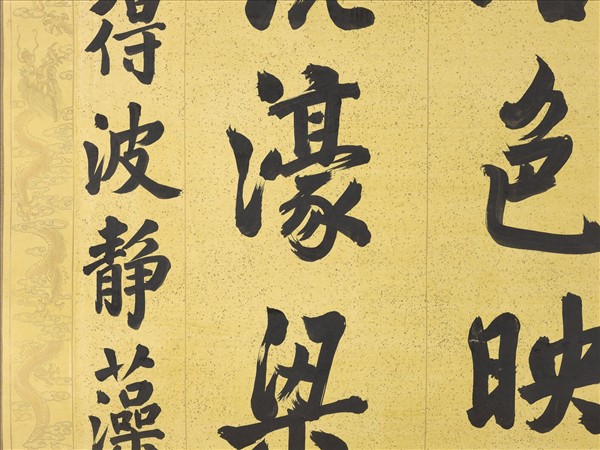 色映
濠梁
得波静藻